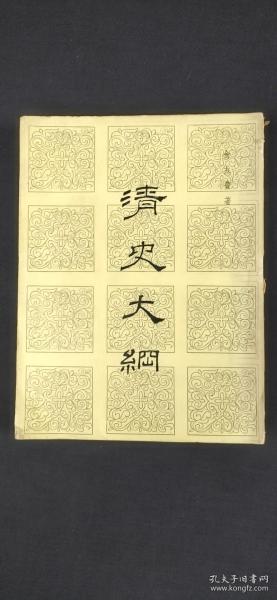 清史大綱
著
孔夫子旧书网
kongfz.com